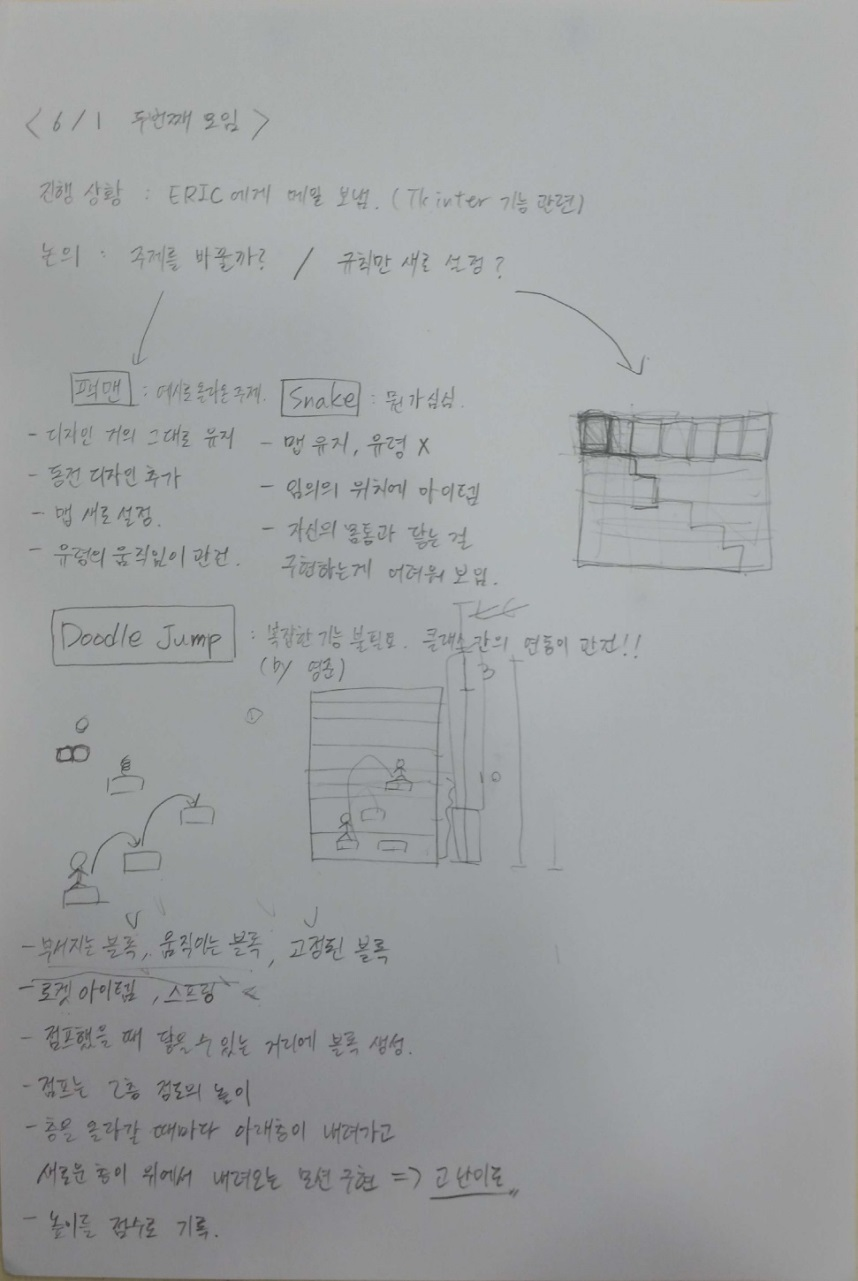 < 6/1 두번째 모임 >
진행 상황 : ERIC에게 메일 보냄. (Tkinter 기능 관련)
논의 : 주제를 바꿀까? / 규칙만 새로 설정?
팩맨 : 예시로 올라온 주제.
- 디자인 거의 그대로 유지
- 동전 디자인 추가
- 맵 새로 설정.
- 유령의 움직임이 관건.
Snake : 뭔가 심심.
- 맵 유지, 유령 X
- 임의의 위치에 아이템
- 자신의 몸통과 닿는 걸
구현하는게 어려워 보임.
Doodle Jump : 복잡한 기능 불필요. 클래스 간의 연동이 관건!!
(by 영준)
①
3
10
- 부서지는 블록, 움직이는 블록, 고정된 블록
- 로켓 아이템, 스프링
- 점프했을 때 닿을 수 있는 거리에 블록 생성.
- 점프는 2층 정도의 높이
- 층을 올라갈 때마다 아래층이 내려가고
새로운 층이 위에서 내려오는 모션 구현 => 고난이도
- 높이를 점수로 기록.